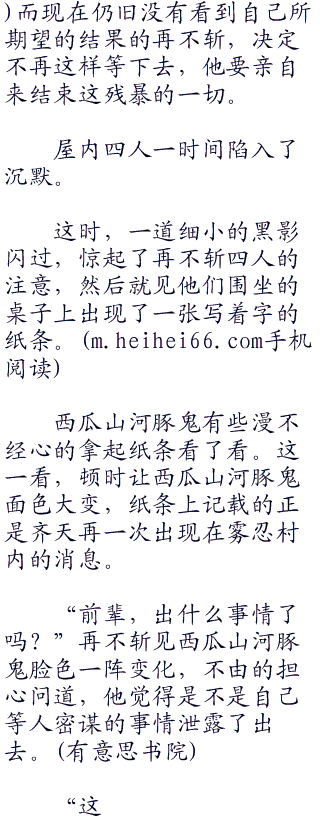 )而现在仍旧没有看到自己所
期望的结果的再不斩，决定
不再这样等下去，他要亲自
来结束这残暴的一切。
屋内四人一时间陷入了
沉默。
这时，一道细小的黑影
闪过，惊起了再不斩四人的
注意，然后就见他们围坐的
桌子上出现了一张写着字的
纸条。(m.heihei66.com手机
阅读)
西瓜山河豚鬼有些漫不
经心的拿起纸条看了看。这
一看，顿时让西瓜山河豚鬼
面色大变，纸条上记载的正
是齐天再一次出现在雾忍村
内的消息。
“前辈，出什么事情了
吗？”再不斩见西瓜山河豚
鬼脸色一阵变化，不由的担
心问道，他觉得是不是自己
等人密谋的事情泄露了出
去。(有意思书院)
“这